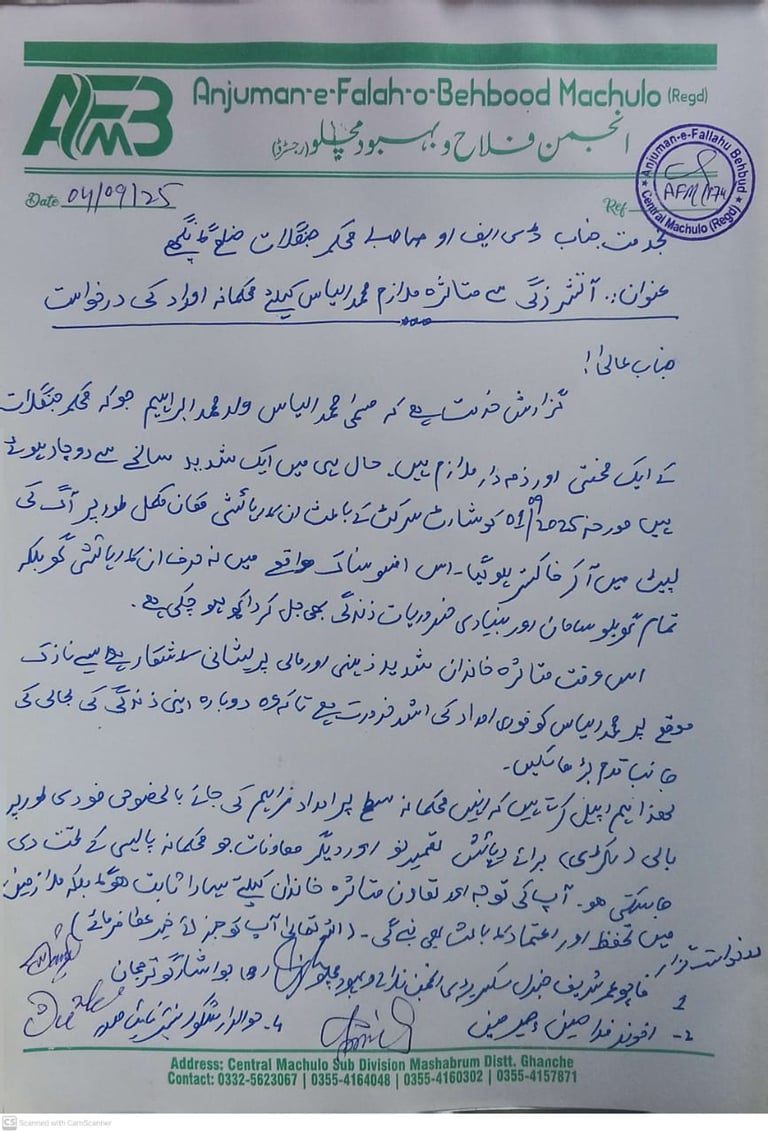 AFMB
Anjuman-e-Falah-o-Behbood Machulo (Regd)
انجمن فلاح و بہبود مچلو (رجسٹرڈ)
Anjuman-e-Fallahu Behbud
AFM/174
Central Machulo (Regd)
Date 04/09/25
Ref
بخدمت جناب ڈی ایف او صاحب محکمہ جنگلات ضلع گانچھے
عنوان: آتشزدگی سے متاثرہ ملازم محمد الیاس کیلئے محکمانہ امداد کی درخواست
جناب عالیٰ!
گزارش خدمت ہے کہ مسمیٰ محمد الیاس ولد محمد ابراہیم جو کہ محکمہ جنگلات
کے ایک محنتی اور ذمہ دار ملازم ہیں۔ حال ہی میں ایک شدید سانحے سے دوچار ہوئے
ہیں مورخہ 01/09/2025 کو شارٹ سرکٹ کے باعث ان کا رہائشی مکان مکمل طور پر آگ کی
لپیٹ میں آکر خاکستر ہو گیا۔ اس افسوسناک واقعے میں نہ صرف ان کا رہائشی گھر بلکہ
تمام گھریلو سامان اور بنیادی ضروریات زندگی بھی جل کر راکھ ہو چکی ہے۔
اس وقت متاثرہ خاندان شدید ذہنی اور مالی پریشانی کا شکار ہے ایسے نازک
موقع پر محمد الیاس کو فوری امداد کی اشد ضرورت ہے تاکہ وہ دوبارہ اپنی زندگی کی بحالی کی
جانب قدم بڑھا سکیں۔
لہذا ہم اپیل کرتے ہیں کہ انہیں محکمانہ سطح پر امداد فراہم کی جائے بالخصوص فوری طور پر
بالی (لکڑی) برائے رہائش تعمیر نو اور دیگر معاونات جو محکمانہ پالیسی کے تحت دی
جا سکتی ہو۔ آپ کی توجہ اور تعاون متاثرہ خاندان کیلئے سہارا ثابت ہوگا بلکہ ملازمین
میں تحفظ اور اعتماد کا باعث بھی بنے گی۔ (اللہ تعالیٰ آپ کو جزائے خیر عطا فرمائے)
درخواست گزار
1 شریف جنرل سکریٹری انجمن فلاح و بہبود مچلو
ترجمان
2۔ اخوند فدا حسین چیئرمین
4۔ حوالدار شکور نائب صدر
Address: Central Machulo Sub Division Mashabrum Distt. Ghanche
Contact: 0332-5623067 | 0355-4164048 | 0355-4160302 | 0355-4157871
CS Scanned with CamScanner